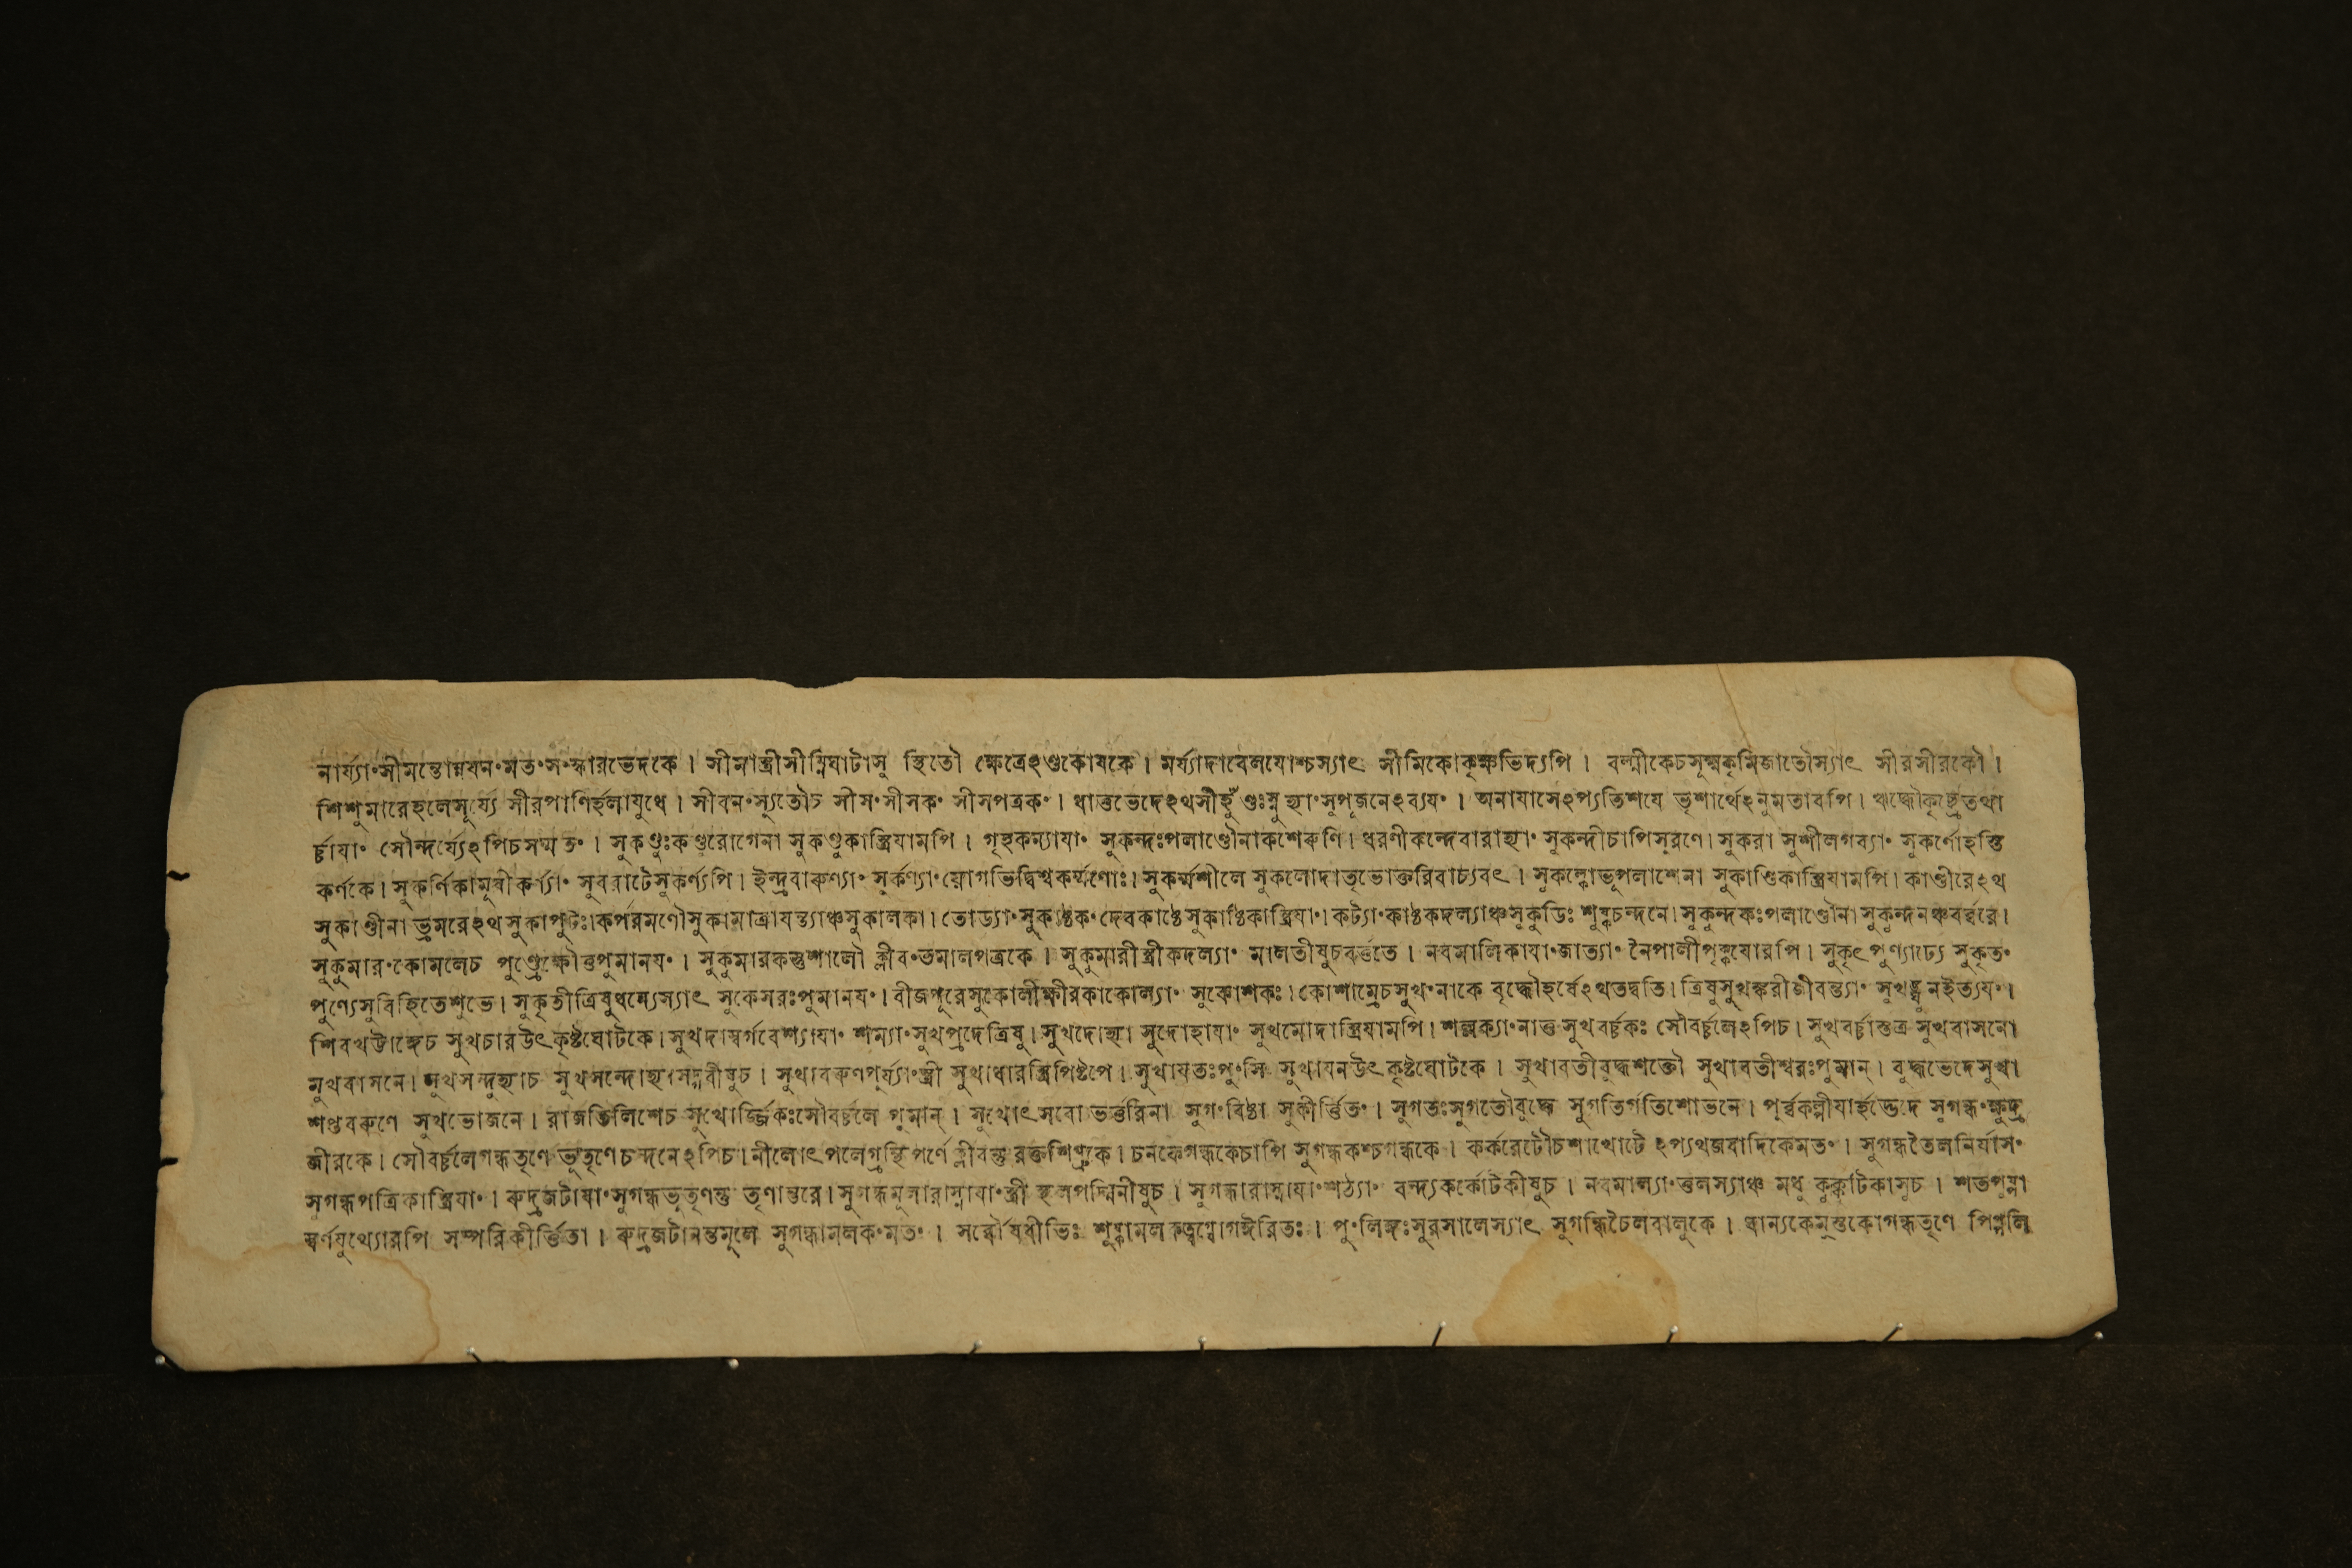 নার্য্যা°সীমন্তোন্নযন°মত°স°স্কারভেদকে। সীমাস্ত্রীসীম্নিঘাটাসু স্থিতৌ ক্ষেত্রেঽণ্ডকোষকে। মর্য্যাদাবেলযোশ্চস্যাৎ সীমিকোবৃক্ষভিদ্যপি। বল্মীকেচসূক্ষ্মকৃমিজাতৌস্যাৎ সীরসীরকৌ।
শিশুমারেহলেসূর্য্যে সীরপাণির্হলাযুধে। সীবন°স্যুতৌচ সীস°সীসক° সীসপত্রক°। ধাত্তভেদেঽথসীহুঁণ্ডঃস্নুহ্যা°সুপূজনেঽব্যয°। অনাযাসেঽপ্যতিশযে ভৃশার্থেঽনুমতাবপি। ঋদ্ধৌকৃচ্ছ্রেতথা
র্চ্চাযা° সৌন্দর্য্যেঽপিচসম্মত°। সুকণ্ডুঃকণ্ডুরোগেনা সুকণ্ডুকাস্ত্রিযামপি। গৃহকন্যাযা° সুকন্দঃপলাণ্ডৌনাকশেরুণি। ধরণীকন্দেবারাহ্যা° সুকন্দীচাপিসূরণে। সুকরা সুশীলগব্যা° সুকর্ণোহস্তি
কর্ণকে। সুকর্ণিকামূষীকর্ণ্যা° সুবরাটেসুকর্ণ্যপি। ইন্দ্রবারুণ্যা° সুর্কণ্যা°যোগভিদ্বিশ্বকর্ম্মণোঃ। সুকর্ম্মশীলে সুকলোদাতৃভোক্তরিবাচ্যবৎ। সুকল্কোভূপলাশেনা সুকাণ্ডিকাস্ত্রিযামপি। কাণ্ডীরেঽথ
সুকাণ্ডীনা ভ্রমরেঽথ সুকাপুটঃ।কর্পরমণৌসুকামাত্রাযন্ত্যাঞ্চসুকালকা। তোড্যা°সুকাষ্ঠক°দেবকাষ্ঠেসুকাষ্ঠিকাস্ত্রিযা°। কট্যা°কাষ্ঠকদল্যাঞ্চসুকুডিঃ শুষ্কচন্দনে। সুকুন্দকঃপলাণ্ডৌনা সুকুন্দনঞ্চবর্ব্বরে।
সুকুমার°কোমলেচ পুণ্ড্রেক্ষৌত্তপুমানয°। সুকুমারকন্তুশালৌ ক্লীব°তমালপত্রকে। সুকুমারীস্ত্রীকদল্যা° মালতীষুচবর্ত্ততে। নবমালিকাযা°জাত্যা° নৈপালীপৃক্কযোরপি। সুকৃৎপুণ্যাঢ্যে সুকৃত°
পুণ্যেসুবিহিতেশুভে। সুকৃতীত্রিষুধন্যেস্যাৎ সুকেসরঃপুমানয°। বীজপূরেসুকোলীক্ষীরকাকোল্যা° সুকোশকঃ। কোশাম্রেচসুখ°নাকে বৃদ্ধৌহর্ষেঽথতদ্বতি। ত্রিষুসুখঙ্করীজীবন্ত্যা° সুখঙ্ঘুনইত্যয°।
শিবখট্টাঙ্গেচ সুখচারউৎকৃষ্টঘোটকে। সুখদাস্বর্গবেশ্যাযা° শম্যা°সুখপ্রদেত্রিষু। সুখদোহ্যা সুদোহাযা° সুখমোদাস্ত্রিযামপি। শল্লক্যা°নাত্ত সুখবর্চ্চকঃ সৌবর্চ্চলেঽপিচ। সুখবর্চ্চাস্তত্র সুখবাসনো
মুখবাসনে। সুখসন্দুহ্যাচ সুখসন্দোহ্যা সুখাবরুণপূর্য্যা°স্ত্রী সুখাধারস্ত্রিপিষ্টপে। সুখাযতঃপু°সি সুখাযনউৎকৃষ্টঘোটকে। সুখাবতীবুদ্ধশক্তৌ সুখাবতীশ্বরঃপুমান্। বুদ্ধভেদেসুখা
শপ্তবরুণে সুখভোজনে। রাজতিলিশেচ সুখোর্জ্জিকঃসৌবর্চ্চলে পুমান্। সুখোৎসবো ভর্ত্তরিনা সুগ°বিষ্ঠা সুকীর্ত্তিত°। সুগতঃসুগতৌবুদ্ধে সুগতির্গতিশোভনে। সুগন্ধ°ক্ষুদ্র
জীরকে। সৌবর্চ্চলেগন্ধতৃণে ভূতৃণেচন্দনেঽপিচ। নীলোৎপলেগ্রন্থিপর্ণে ক্লীবন্তু রক্তশিগ্রুকে। চনকেগন্ধকেচাপি সুগন্ধকশ্চগন্ধকে। কর্করেটৌচশাখোটে ঽপ্যথজযাদিকেমত°। সুগন্ধতৈলনির্যাস°
সুগন্ধপত্রিকাস্ত্রিযা°। রুদ্রজটাযা°সুগন্ধভূতৃণন্তু তৃণান্তরে। সুগন্ধমূলারাস্নাযা°স্ত্রী স্থলপদ্মিনীষুচ। সুগন্ধারাস্নাযা°শঠ্যা° বন্ধ্যকর্কোটকীষুচ। নবমাল্যা°ত্তলস্যাঞ্চ মধু কুক্কুটিকাসুচ। শতপুষ্পা
স্বর্ণযুথ্যোরপি সম্পরিকীর্ত্তিতা। রুদ্রজটানন্তমূলে সুগন্ধামলক°মত°। সর্ব্বৌষধীভিঃ শুষ্কামল পু°লিঙ্গঃসুরসালেস্যাৎ সুগন্ধিচৈলবালুকে। ধান্যকেমুস্তকোগন্ধতৃণে পিপ্পলি